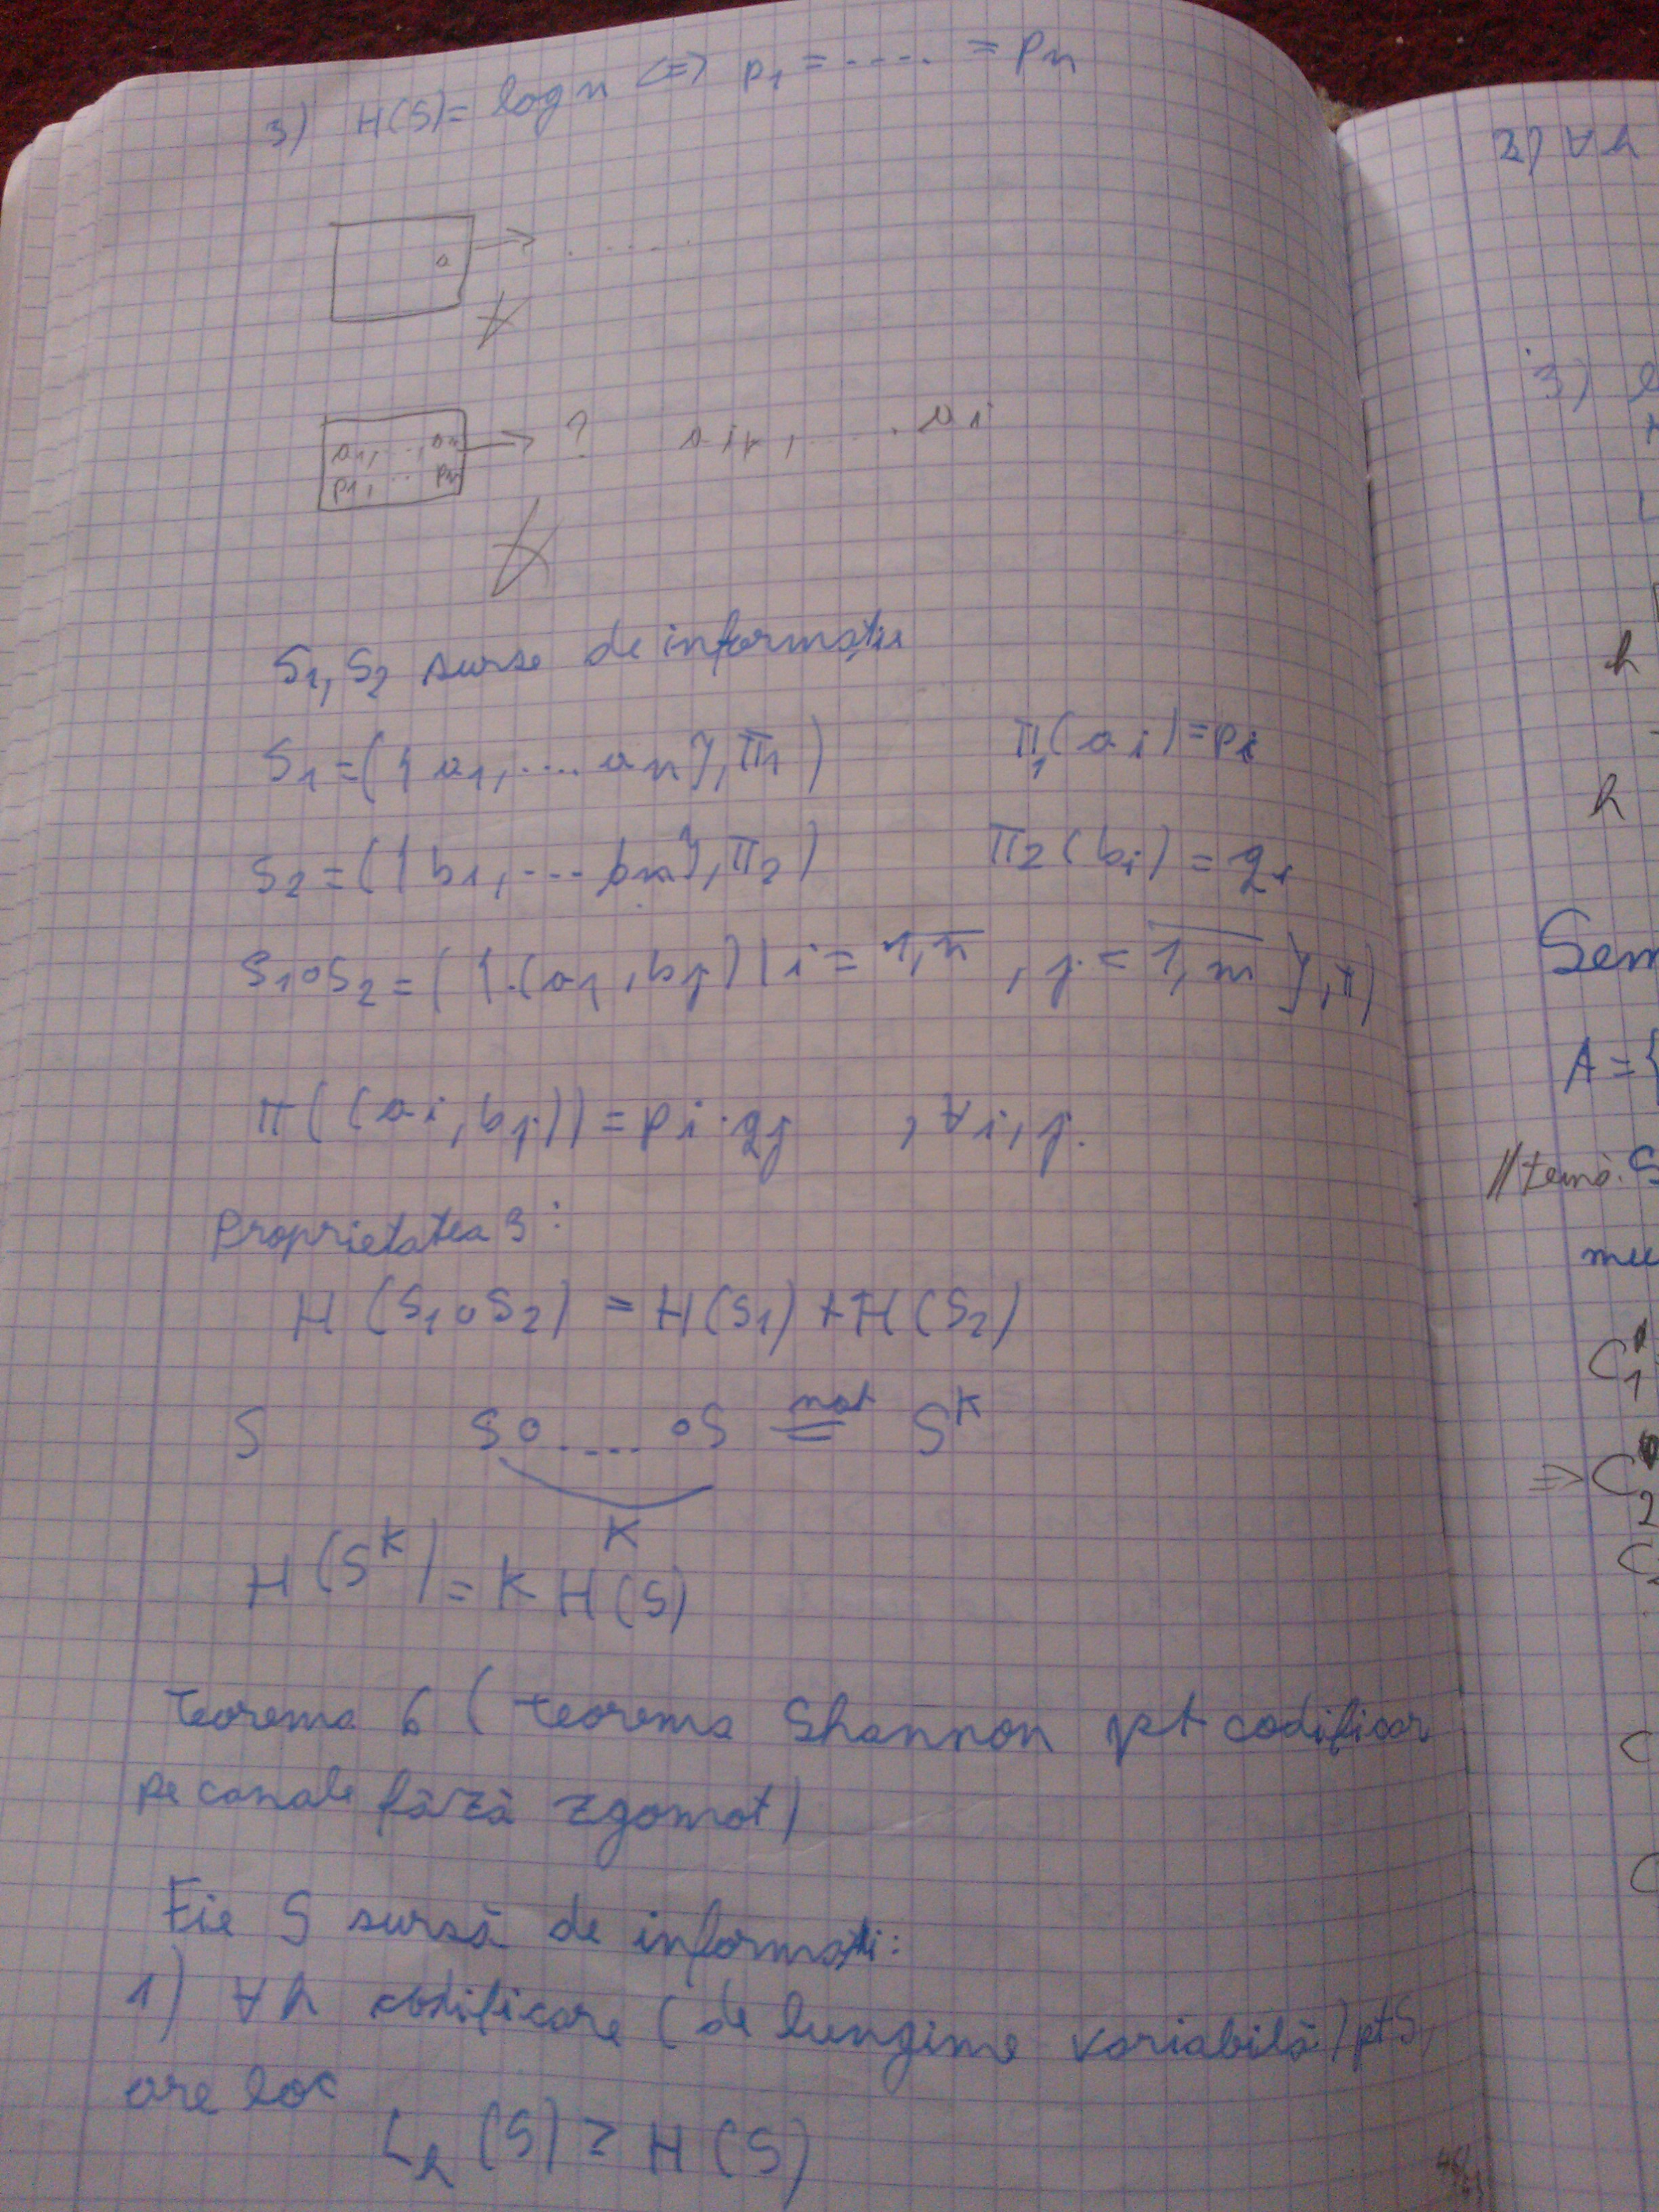 3) H(S)= log n <=> p1 = ..... = pn
a → .....
a1, ..., an → ?
p1, .. pn
S1, S2 surse de informație
S1=({a1,....an},π1) π1(ai)=pi
S2=({b1,...bm},π2) π2(bi)=qi
S1∘S2=({(ai,bj)|i=1,n , j=1,m},π)
π((ai,bj))=pi·qj , ∀i,j.
Proprietatea 3:
H(S1∘S2) = H(S1)+H(S2)
S S∘....∘S not= S^K
K
H(S^K)=K H(S)
Teorema 6 (teorema Shannon pt codificar
pe canale fără zgomot)
Fie S sursă de informații:
1) ∀h codificare (de lungime variabilă) pt S,
are loc
Lh(S)≥H(S)
2) ∀h
3)
h
h
Sem
A={
//temă.
C1
=>C2
C
C